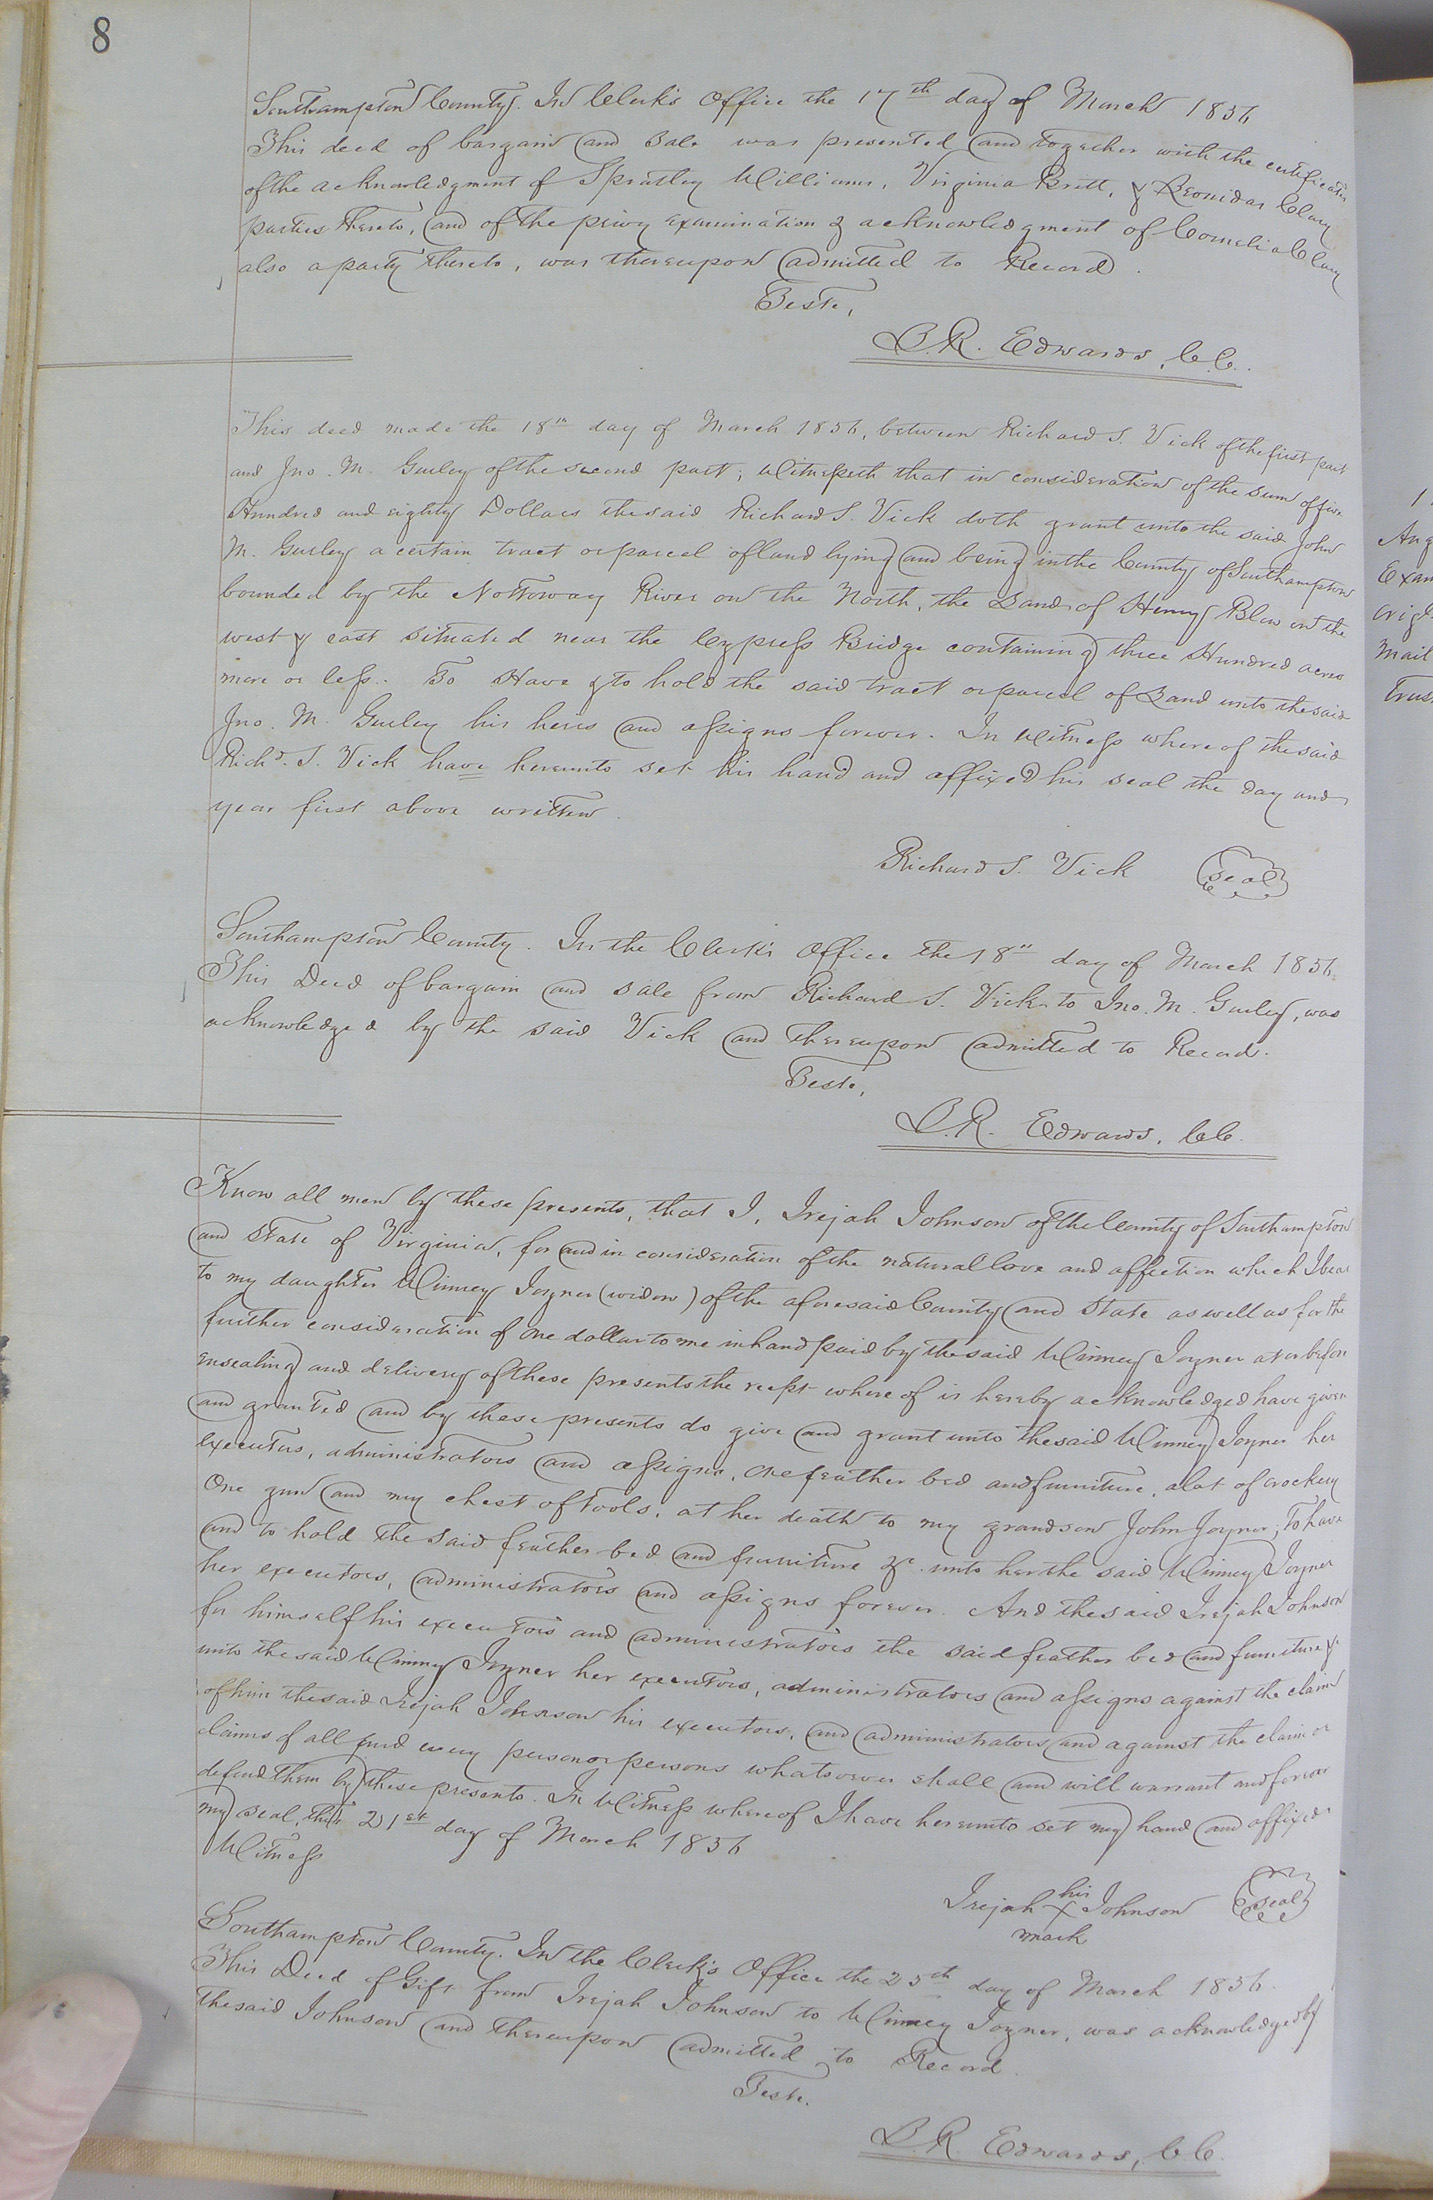 8
Southampton County. In Clerk's Office the 17th day of March 1856
This deed of bargain and Sale was presented and together with the certificates
of the acknowledgment of Spratley Williams, Virginia Britt, & Leonidas Clary
parties thereto, and of the privy examination & acknowledgment of Cornelia Clary
also a party thereto, was thereupon admitted to Record.
Teste,
L. R. Edwards, C.C.
This deed made the 18th day of March 1856, between Richard S. Vick of the first part
and Jno. M. Gurley of the second part; Witnesseth that in consideration of the sum of five
Hundred and eighty Dollars the said Richard S. Vick doth grant unto the said John
M. Gurley a certain tract or parcel of land lying and being in the County of Southampton
bounded by the Nottoway River on the North, the Lands of Henry Blow on the
west & east situated near the Cypress Bridge containing three Hundred acres
more or less. To Have & to hold the said tract or parcel of Land unto the said
Jno. M. Gurley his heirs and assigns forever. In Witness whereof the said
Richd. S. Vick have hereunto set his hand and affixed his seal the day and
year first above written.
Richard S. Vick Seal
Southampton County. In the Clerk's Office the 18th day of March 1856.
This Deed of bargain and sale from Richard S. Vick to Jno. M. Gurley, was
acknowledged by the said Vick and thereupon admitted to Record.
Teste,
L. R. Edwards, C.C.
Know all men by these presents, that I, Irejah Johnson of the County of Southampton
and State of Virginia, for and in consideration of the natural love and affection which I bear
to my daughter Winney Joyner (widow) of the aforesaid County and State as well as for the
further consideration of one dollar to me in hand paid by the said Winney Joyner at or before
ensealing and delivery of these presents the recept where of is hereby acknowledged have given
and granted and by these presents do give and grant unto the said Winney Joyner her
executors, administrators and assigns, one feather bed and furniture, a lot of crockery
One gun and my chest of tools, at her death to my grandson John Joyner; To have
and to hold the said feather bed and furniture &c. unto her the said Winney Joyner
her executors, administrators and assigns forever. And the said Irejah Johnson
for himself his executors and administrators the said feather bed and furniture &c
unto the said Winney Joyner her executors, administrators and assigns against the claim
of him the said Irejah Johnson his executors, and administrators and against the claim or
claims of all and every person or persons whatsoever shall and will warrant and forever
defend them by these presents. In Witness whereof I have hereunto set my hand and affixed
my seal, this 21st day of March 1856
Witness
his
Irejah X Johnson Seal
mark
Southampton County. In the Clerk's Office the 25th day of March 1856.
This Deed of Gift from Irejah Johnson to Winney Joyner, was acknowledged by
the said Johnson and thereupon admitted to Record.
Teste.
L. R. Edwards, C.C.
1
Ang
Exam
origl
Mail
Trus